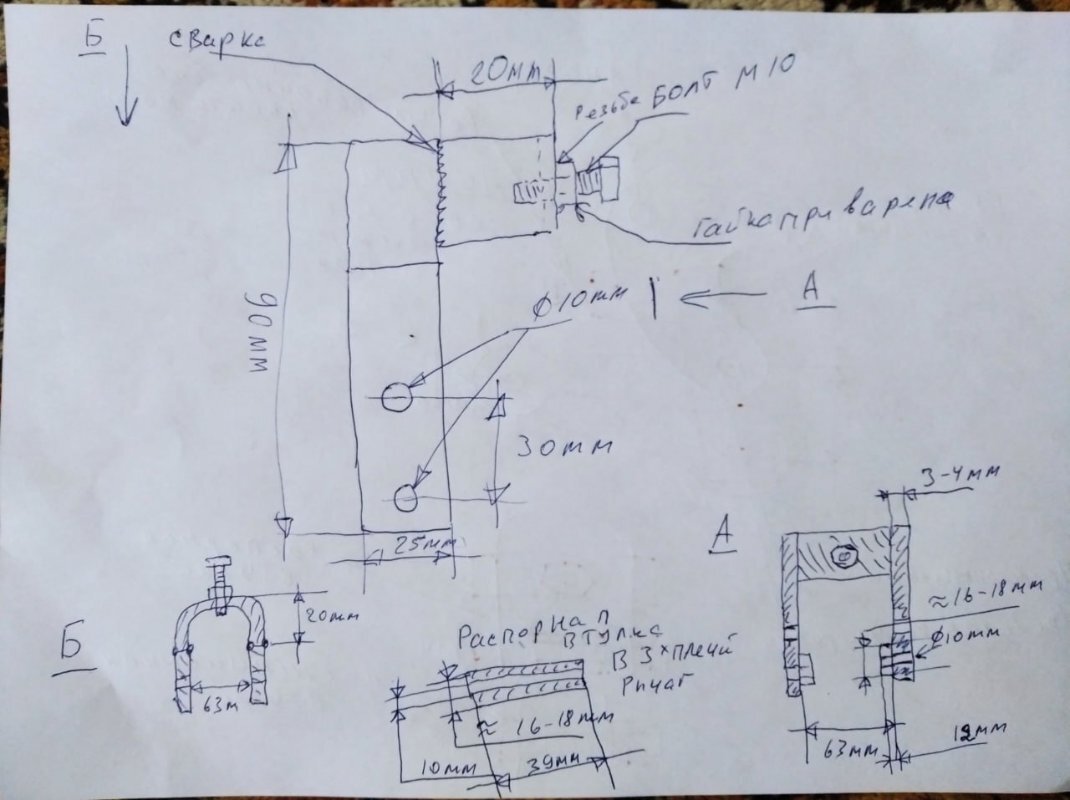 Б
сварка
20мм
Резьба
Болт М10
Гайка приварена
90мм
ф10мм
А
30мм
25мм
3-4мм
А
≈16-18мм
ф10мм
20мм
Б
63м
Распорная
втулка
В 3х плечий
Рычаг
≈ 16-18мм
10мм
39мм
63мм
12мм